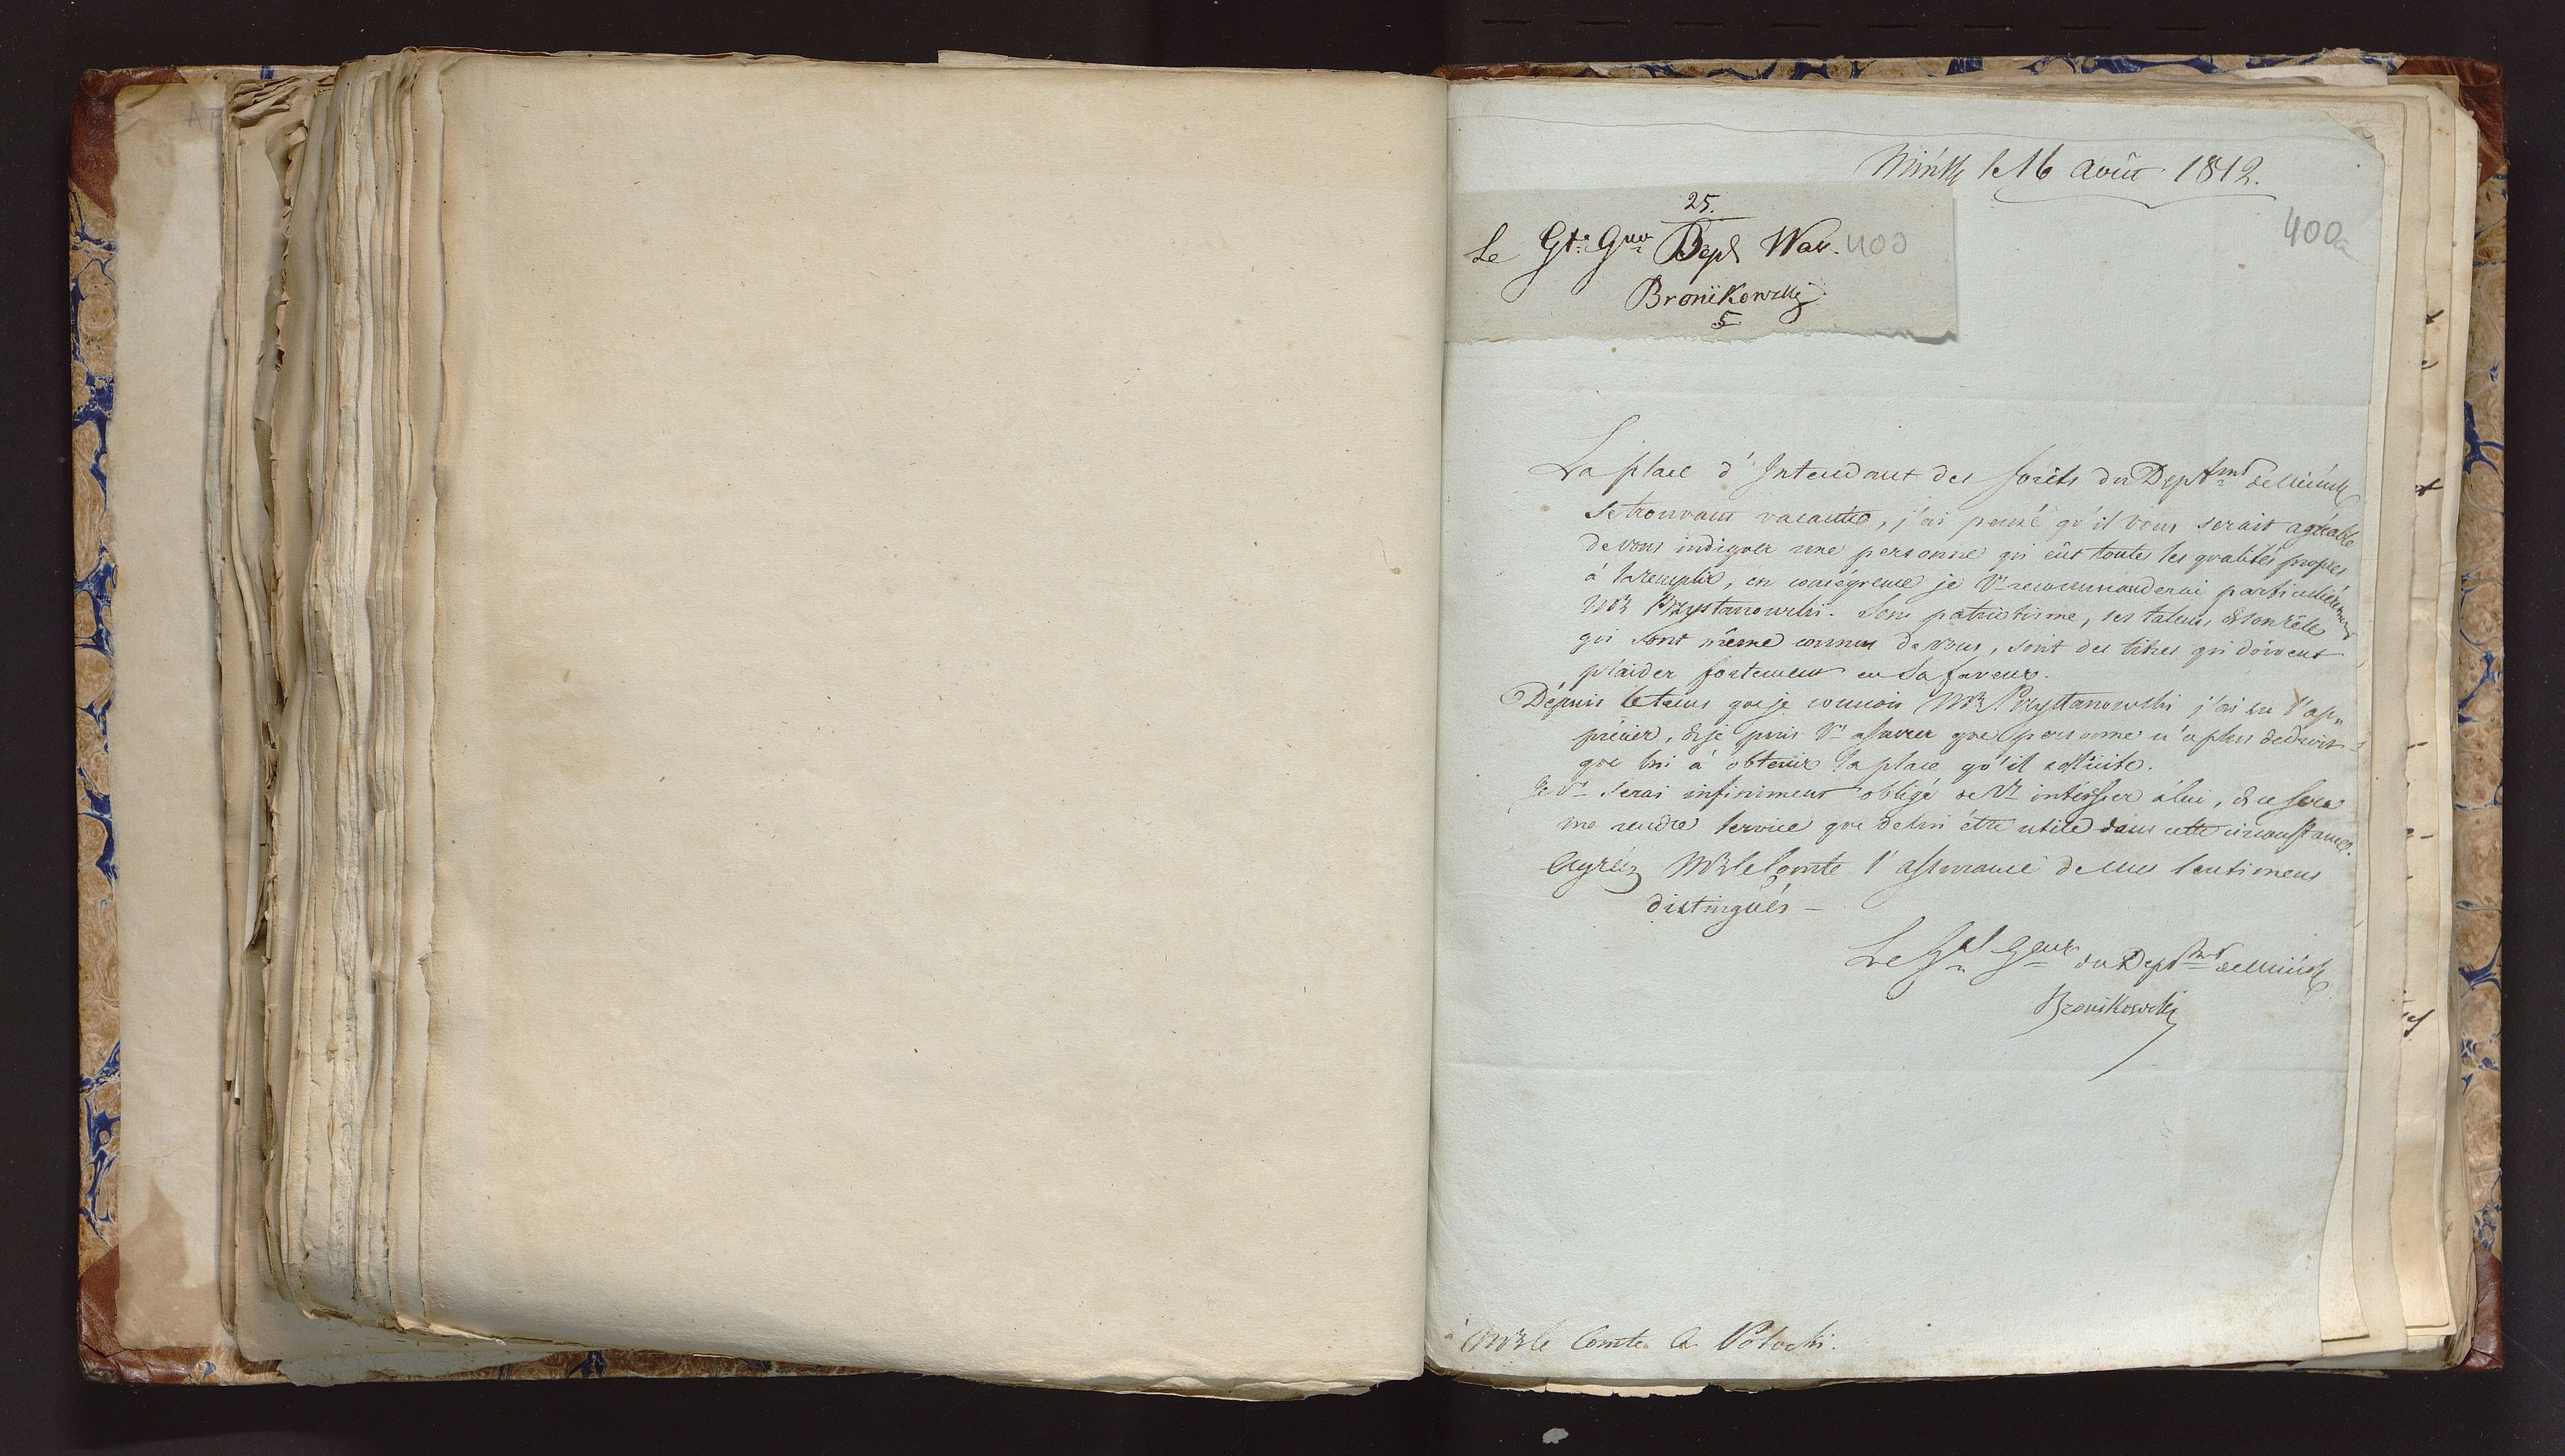 Minsk le 16 août 1812.
400a
25.
Le Gl. Gur Dept War. 400
Bronikowski
5
La place d'Intendant des forêts du Deptmt de Minsk
se trouvant vacante, j'ai pensé qu'il vous serait agréable
de vous indiquer une personne qui eût toutes les qualités propres
à la remplir, en conséquence je Vs recommanderai particulièrement
Mr Przystanowski. Son patriotisme, ses talens, & son zèle
qui sont même connus de vous, sont des titres qui doivent
plaider fortement en sa faveur.
Dépuis le tems que je connois Mr Przystanowski j'ai su l'ap„
précier, & je puis Vs assurer que personne n'a plus de droits
que lui à obtenir la place qu'il sollicite.
Je Vs serai infiniment obligé de Vs intéresser à lui, & ce sera
me rendre service que de lui être utile dans cette circonstance.
Agréez Mr le Comte l'assurance de mes sentimens
distingués –
Le Gal Geur du Deptmt de Minsk
Bronikowski
à Mr le Comte A. Potocki.